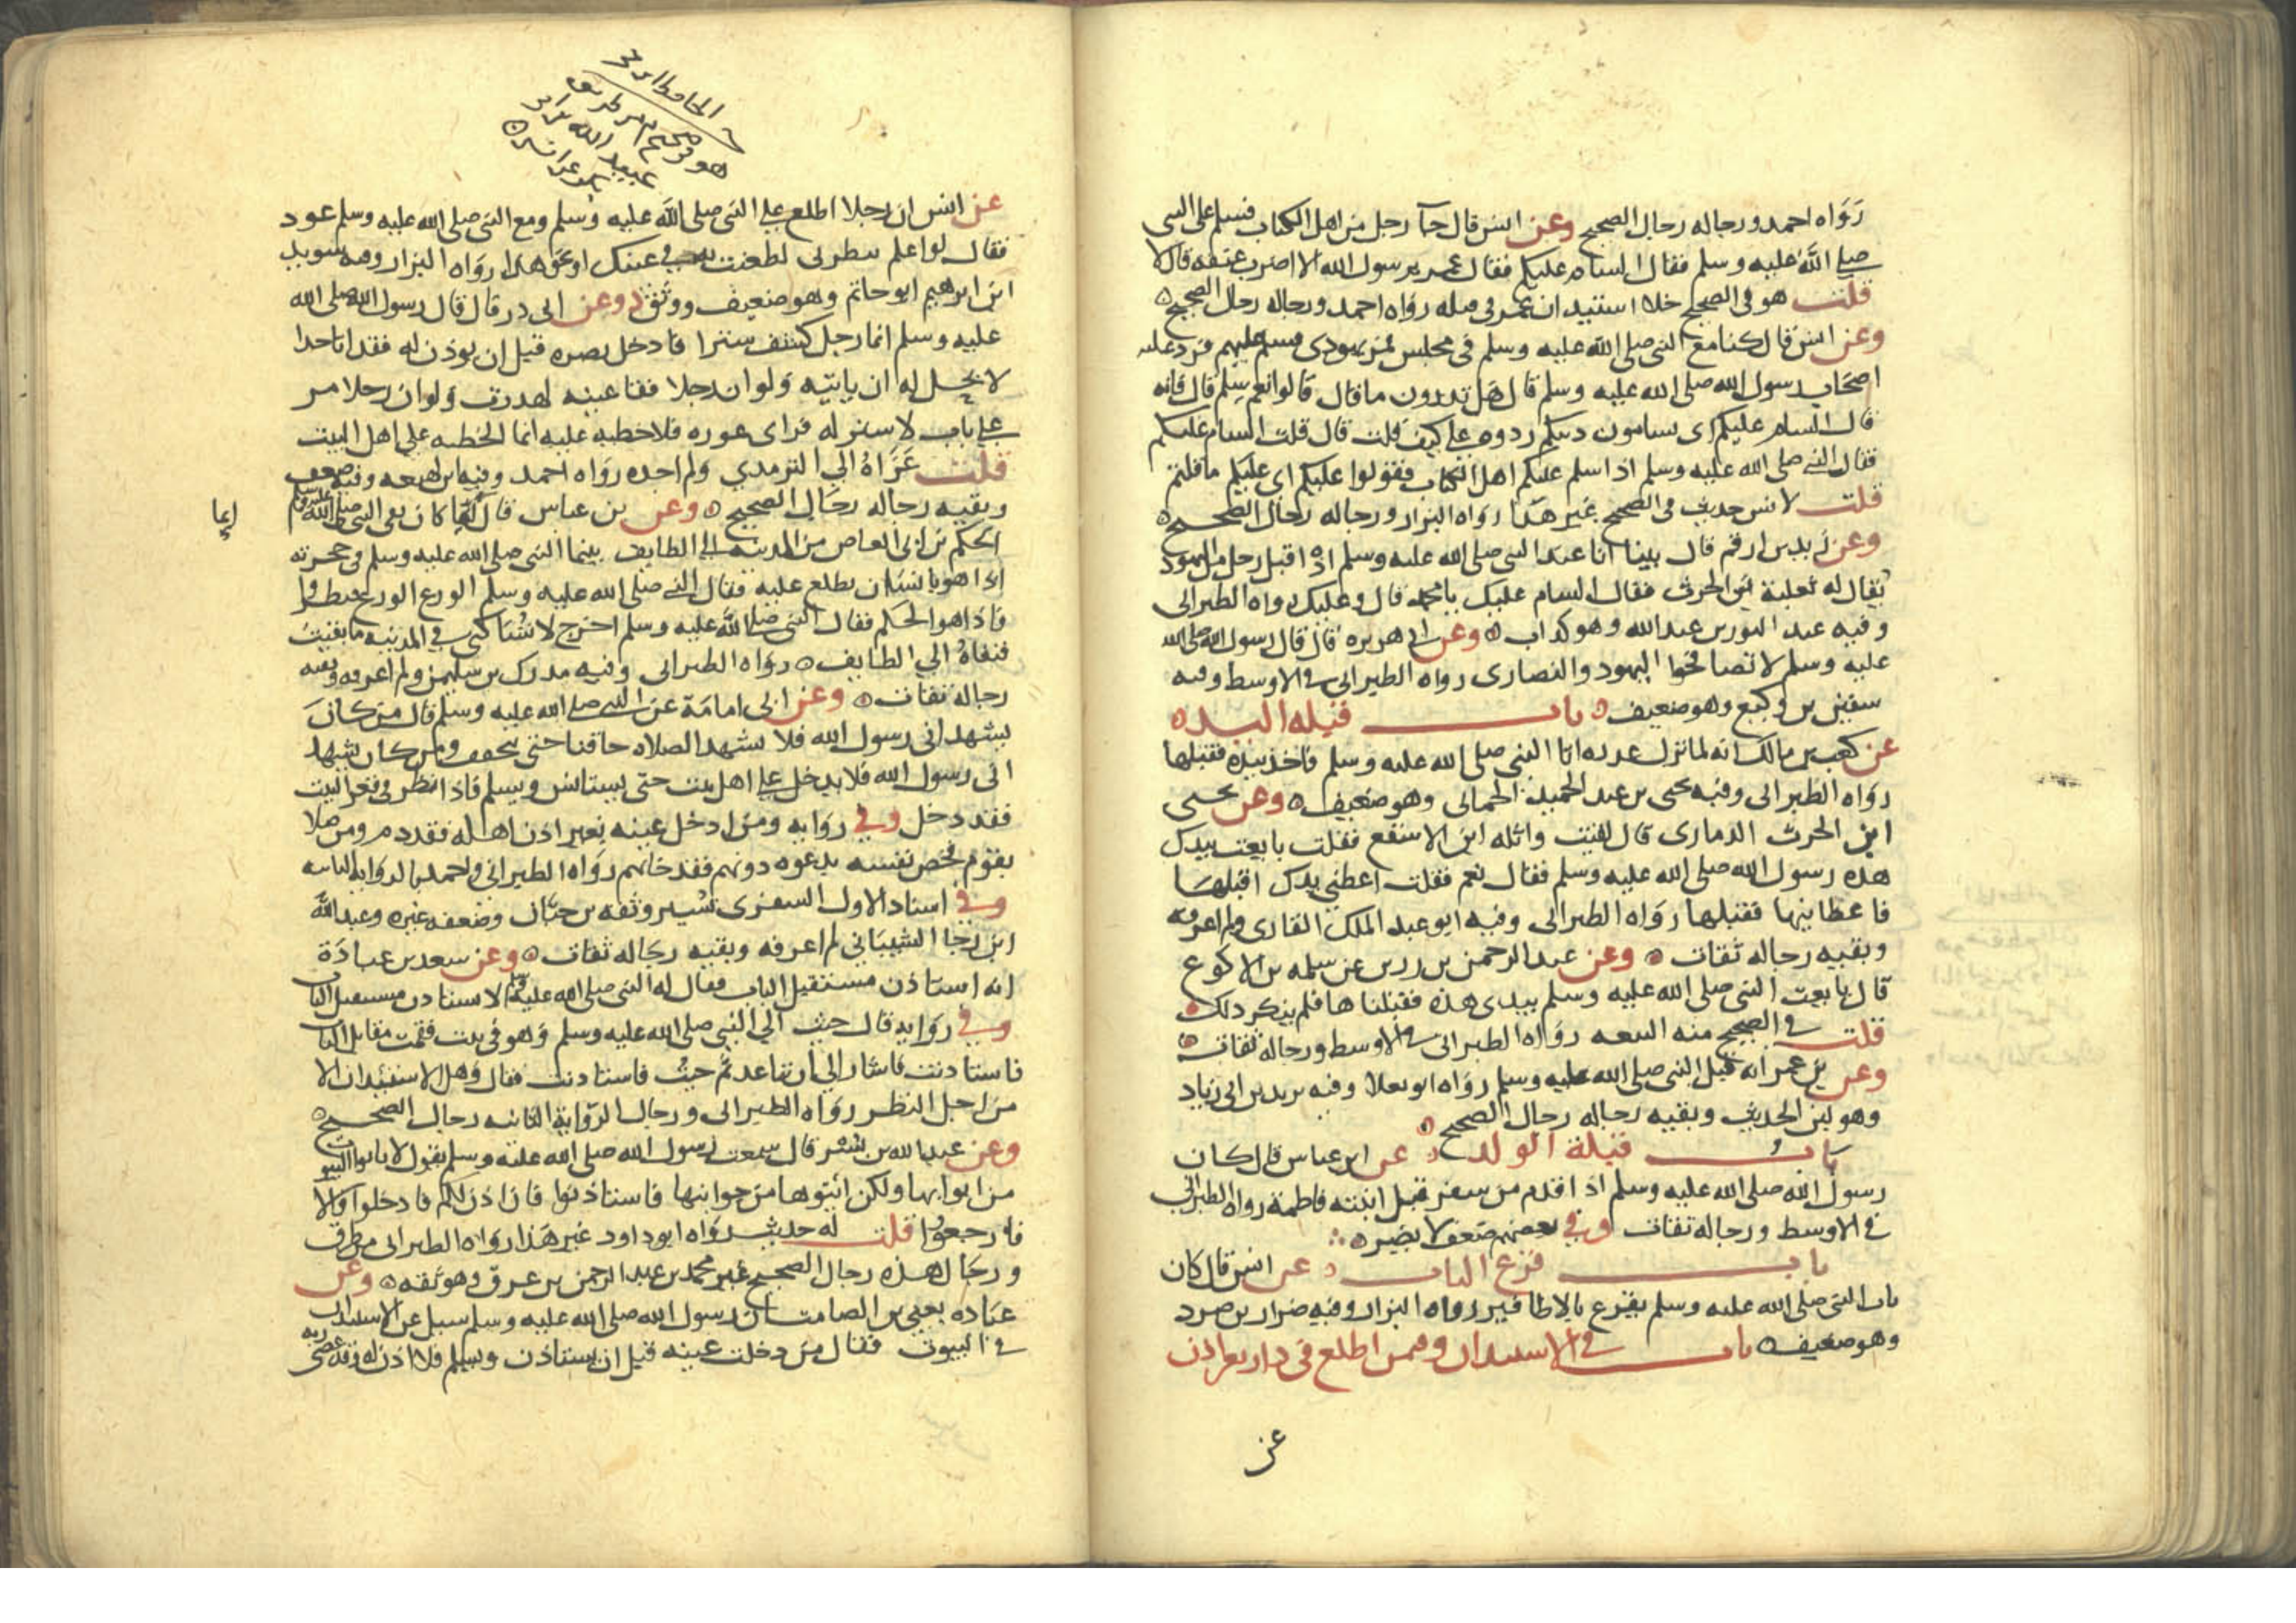 رواه احمد ورجاله رجال الصحيح وعن انس قال جآ رجل من اهل الكتاب فسلم على النبى
صلى الله عليه وسلم فقال السام عليكم فقال عمر يرسول الله الا اضرب عنقه قال لا
قلت هو فى الصحيح خلا استيذان عمر فى قتله رواه احمد ورجاله رجال الصحيح
وعن انس قال كنا مع النبى صلى الله عليه وسلم فى مجلس فمر يهودى فسلم عليهم فرد عليه
اصحاب رسول الله صلى الله عليه وسلم قال هل تدرون ما قال قالوا نعم سلم قال فانه
قال السام عليكم اى تسامون دينكم ردوه على كيف قلت قال قلت السام عليكم
فقال النبى صلى الله عليه وسلم اذا سلم عليكم اهل الكتاب فقولوا عليكم اى عليكم ما قلتم
قلت لانس حديث فى الصحيح غير هذا رواه البزار ورجاله رجال الصحيح
وعن زيد بن ارقم قال بينا انا عند النبى صلى الله عليه وسلم اذ اقبل رجل من اليهود
يقال له ثعلبة بن الحرث فقال السام عليك يا محمد قال وعليك رواه الطبرانى
وفيه عبد النور بن عبد الله وهو كذاب وعن ابى هريره قال قال رسول الله صلى الله
عليه وسلم لا تصافحوا اليهود والنصارى رواه الطبرانى فى الاوسط وفيه
سفين بن وكيع وهو ضعيف باب قبله اليد
عن كعب بن مالك انه لما نزل عذره اتا النبى صلى الله عليه وسلم فاخذ بيده فقبلها
رواه الطبرانى وفيه يحيى بن عبد الحميد الحمانى وهو ضعيف وعن يحيى
ابن الحرث الدمارى قال لقيت واثله ابن الاسقع فقلت بايعت بيدك
هذه رسول الله صلى الله عليه وسلم فقال نعم فقلت اعطنى يدك اقبلها
فاعطانيها فقبلها رواه الطبرانى وفيه ابو عبد الملك القارى ولم اعرفه
وبقيه رجاله ثقات وعن عبد الرحمن بن رزين عن سلمه بن الاكوع
قال بايعت النبى صلى الله عليه وسلم بيدى هذه فقبلناها فلم ينكر ذلك
قلت فى الصحيح منه البيعه رواه الطبرانى فى الاوسط ورجاله ثقات
وعن بن عمر انه قبل النبى صلى الله عليه وسلم رواه ابو يعلا وفيه يزيد بن ابى زياد
وهو لين الحديث وبقيه رجاله رجال الصحيح
باب قبلة الولد عن ابن عباس قال كان
رسول الله صلى الله عليه وسلم اذا قدم من سفر قبل ابنته فاطمة رواه الطبرانى
فى الاوسط ورجاله ثقات وفى بعضهم ضعف لا يضر
باب قرع الباب عن انس قال كان
باب النبى صلى الله عليه وسلم يقرع بالاظافير رواه البزار وفيه ضرار بن صرد
وهو ضعيف باب فى الاستيذان وفيمن اطلع فى دار بغير اذن
عن
هو فى صحيح م من طريق
عبيد الله بن ابى
بكر عن انس
عن انس ان رجلا اطلع على النبى صلى الله عليه وسلم ومع النبى صلى الله عليه وسلم عود
فقال لو اعلم تنظرنى لطعنت به فى عينك او نحو هذا رواه البزار وفيه سويد
ابن ابرهيم ابو حاتم وهو ضعيف ووثق وعن ابى ذر قال قال رسول الله صلى الله
عليه وسلم ايما رجل كشف سترا فادخل بصره قبل ان يوذن له فقد اتا حدا
لا يحل له ان ياتيه ولو ان رجلا فقا عينه لهدرت ولو ان رجلا مر
على باب لا ستر له فراى عوره فلا خطيه عليه انما الخطيه على اهل البيت
قلت عزاه الى الترمدي ولم اجده رواه احمد وفيه ابن لهيعه وفيه ضعف
وبقيه رجاله رجال الصحيح وعن بن عباس قال انما كان نفى النبى صلى الله عليه وسلم
إنما
الحكم بن ابى العاص من المدينه الى الطايف بينما النبى صلى الله عليه وسلم فى حجرته
اذا هو بانسان يطلع عليه فقال النبى صلى الله عليه وسلم الوزع الوزع فنظروا
فاذا هو الحكم فقال النبى صلى الله عليه وسلم اخرج لا تساكنى فى المدينه ما بقيت
فنفاه الى الطايف رواه الطبرانى وفيه مدرك بن سليمن ولم اعرفه وبقيه
رجاله ثقات وعن ابى امامة عن النبى صلى الله عليه وسلم قال من كان
يشهد انى رسول الله فلا يشهد الصلاه حاقنا حتى يخفف ومن كان يشهد
انى رسول الله فلا يدخل على اهل بيت حتى يستانس ويسلم فاذا نظر فى قعر البيت
فقد دخل وفى روايه ومن ادخل عينه بغير اذن اهله فقد دمر ومن صلا
بقوم فخص نفسه بدعوه دونهم فقد خانهم رواه الطبرانى واحمد بالروايه الثانيه
وفى اسناد الاول السفر بن نسير وثقه بن حبان وضعفه غيره وعبد الله
ابن رجا الشيبانى لم اعرفه وبقيه رجاله ثقات وعن سعد بن عبادة
انه استاذن مستقبل الباب فقال له النبى صلى الله عليه وسلم لا تستاذن مستقبل الباب
وفى روايه قال جيت الى النبى صلى الله عليه وسلم وهو فى بيت فقمت مقابل الباب
فاستاذنت فاشار الى ان تباعد ثم جيت فاستاذنت فقال وهل الاستيذان الا
من اجل النظر رواه الطبرانى ورجال الروايه الثانيه رجال الصحيح
وعن عبد الله بن بسر قال سمعت رسول الله صلى الله عليه وسلم يقول لا تاتوا البيوت
من ابوابها ولكن ائتوها من جوانبها فاستاذنوا فان اذن لكم فادخلوا والا
فارجعوا قلت له حديث رواه ابو داود غير هذا رواه الطبرانى من طرق
ورجال هذه رجال الصحيح غير محمد بن عبد الرحمن بن عرق وهو ثقه وعن
عباده يعنى بن الصامت ان رسول الله صلى الله عليه وسلم سيل عن الاستيذان
فى البيوت فقال من دخلت عينه قبل ان يستاذن ويسلم فلا اذن له وقد عصى ربه